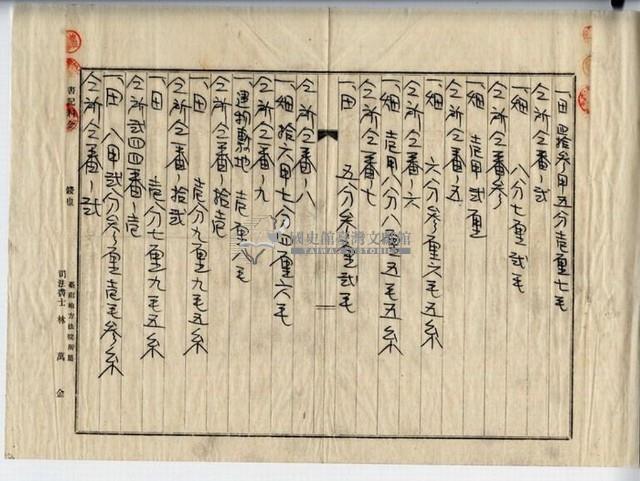 一田 四拾参甲五分壱厘七毛
仝所仝番ノ弐
一畑 八分七厘弐毛
仝所仝番ノ参
一畑 壱甲弐厘
仝所仝番ノ五
一畑 六分参厘六毛五糸
仝所仝番ノ六
一畑 壱甲八分八厘五毛五糸
仝所仝番ノ七
一田 五分参厘弐毛
仝所仝番ノ八
一畑 拾六甲七分四厘六毛
仝所仝番ノ九
一運動敷地 壱厘六毛
仝所仝番ノ拾壱
一田 壱分九厘九毛五糸
仝所仝番ノ拾弐
一田 壱分七厘九毛五糸
仝所弐四四番ノ壱
一田 八甲弐分参厘壱毛参糸
仝所仝番ノ弐
書記料金 錢也
臺南地方法院所屬
司法書士 林萬金
國史館臺灣文獻館
TAIWAN HISTORICA